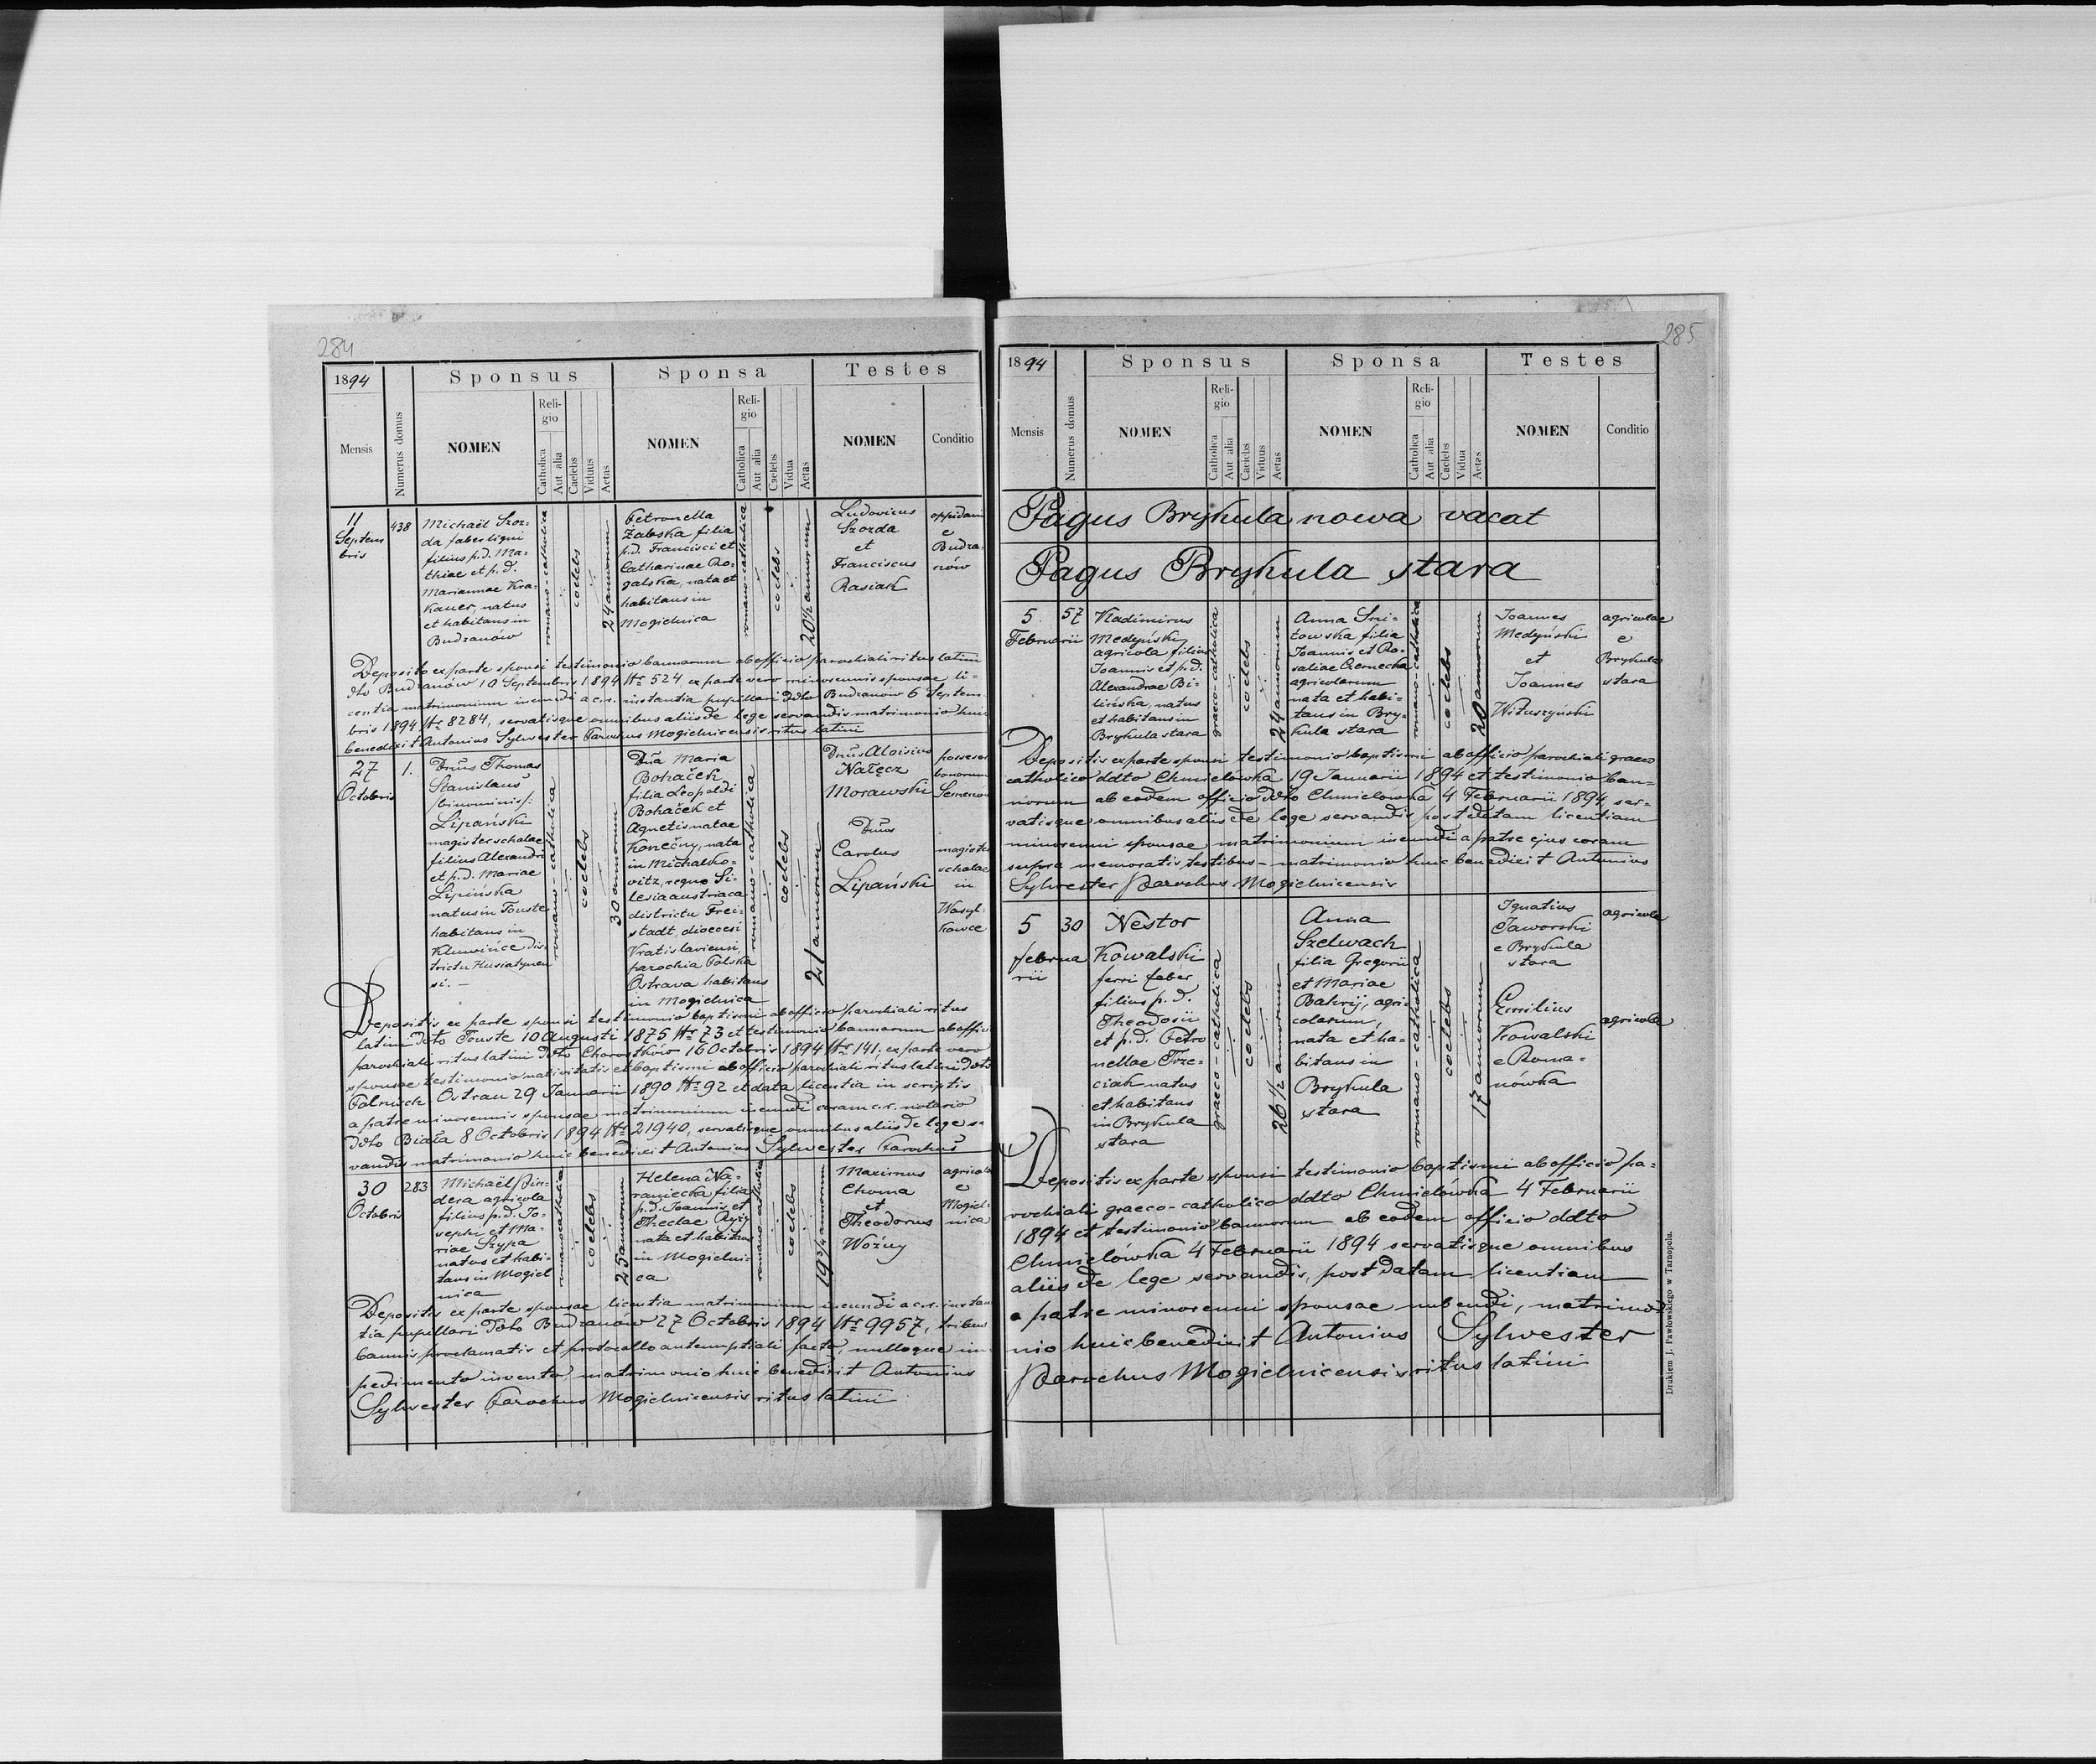 284
1894
Sponsus
Sponsa
Testes
Mensis
Numerus domus
NOMEN
Reli-
gio
Catholica
Aut alia
Caelebs
Viduus
Aetas
NOMEN
Reli-
gio
Catholica
Aut alia
Caelebs
Vidua
Aetas
NOMEN
Conditio
11
Septem
bris
438
Michaël Szoz-
da faber ligni
filius p.d. Ma-
thiae et p.d.
Mariannae Kra-
kauer, natus
et habitans in
Budzanów
romano-catholica
coelebs
24 annorum
Petronella
Żabska filia
p.d. Francisci et
Catharinae Ro-
galska, nata et
habitans in
Mogielnica
romano-catholica
coelebs
20 1/2 annorum
Ludovicus
Szozda
et
Franciscus
Rasiak
oppidani
e
Budza-
nów
Deposito ex parte sponsi testimonio bannorum ab officio parochiali ritus latini
ddto Budzanów 10 Septembris 1894 Nr 524 ex parte vero minorennis sponsae li-
centia matrimonium ineundi a c.r. instantia pupillari ddto Budzanów 6 Septem-
bris 1894 Nr 8284, servatisque omnibus aliis de lege servandis matrimonio huic
benedixit Antonius Sylwester Parochus Mogielnicensis ritus latini
27
Octobris
1.
Dnus Thomas
Stanislaus
/binominis/:
Lipański
magister scholae
filius Alexandri
et p.d. Mariae
Lipińska
natus in Touste
habitans in
Kluwińce dis-
trictu Husiatynen
si. -
romano-catholica
coelebs
30 annorum
Dna Maria
Bohaček
filia Leopoldi
Bohaček et
Agnetis natae
Konečny, nata
in Michalko-
vitz, regno Si-
lesia austriaca
districtu Frei-
stadt, dioecesi
Vratislaviensi,
parochia Polska
Ostrava habitans
in Mogielnica
romano-catholica
coelebs
21 annorum
Dnus Aloisius
Nałęcz
Morawski
Dnus
Carolus
Lipański
possesor
bonorum
Semenów
magister
scholae
in
Wasyl-
kowce
Depositis ex parte sponsi testimonio baptismi ab officio parochiali ritus
latini ddto Touste 10 Augusti 1875 Nr 73 et testimonio bannorum ab officio
parochiali ritus latini ddto Chorostków 16 Octobris 1894 Nr 141; ex parte vero
sponsae testimonio nativitatis et baptismi ab officio parochiali ritus latini ddto
Polnisch Ostrau 29 Januarii 1890 Nr 92 et data licentia in scriptis
a patre minorennis sponsae matrimonium ineundi coram c.r. notario
ddto Biała 8 Octobris 1894 Nr 21940, servatisque omnibus aliis de lege ser
vandis matrimonio huic benedixit Antonius Sylwester Parochus
30
Octobris
283
Michaël
dera agricola
filius p.d. Jo-
sephi et Ma-
riae Szypa
natus et habi-
tans in Mogiel
nica
romano catholica
coelebs
25 annorum
Helena Na-
raniecka filia
p.d. Joannis et
Theclae Ryży
nata et habitans
in Mogielni-
ca
romano-catholica
coelebs
19 3/4 annorum
Maximus
Choma
et
Theodorus
Woźny
agricolae
e
Mogiel-
nica
Depositis ex parte sponsae licentia matrimonium ineundi a c.r. instan
tia pupillari ddto Budzanów 27 Octobris 1894 Nr 9957, tribus
bannis proclamatis et protocollo antenuptiali facto, nulloque im
pedimento invento matrimonio huic benedixit Antonius
Sylwester Parochus Mogielnicensis ritus latini
285
1894
Sponsus
Sponsa
Testes
Mensis
Numerus domus
NOMEN
Reli-
gio
Catholica
Aut alia
Caelebs
Viduus
Aetas
NOMEN
Reli-
gio
Catholica
Aut alia
Caelebs
Vidua
Aetas
NOMEN
Conditio
Pagus Brykula nowa vacat
Pagus Brykula stara
5
Februarii
57
Vladimirus
Medyński
agricola filius
Joannis et p.d.
Alexandrae Bi-
lińska, natus
et habitans in
Brykula stara
graeco-catholica
coelebs
24 annorum
Anna
towska filia
Joannis et Ro-
saliae Czernecka
agricolarum
nata et habi-
tans in Bry-
kula stara
romano-catholica
coelebs
20 annorum
Joannes
Medyński
et
Joannes
Wituszyński
agricolae
e
Brykula
stara
Depositis ex parte sponsi testimonio baptismi ab officio parochiali graeco
catholico ddto Chmielówka 19 Januarii 1894 et testimonio ban-
norum ab eodem officio ddto Chmielówka 4 Februarii 1894, ser-
vatisque omnibus aliis de lege servandis, post datam licentiam
minorenni sponsae matrimonium ineundi a patre ejus coram
supra memoratis testibus - matrimonio huic benedixit Antonius
Sylwester Parochus Mogielnicensis
5
februa
rii
30
Nestor
Kowalski
ferri faber
filius p.d.
Theodosii
et p.d. Petro
nellae Trze-
ciak natus
et habitans
in Brykula
stara
graeco-catholica
coelebs
26 1/2 annorum
Anna
Szelwach
filia Gregorii
et Mariae
Bakrij, agri-
colarum,
nata et ha-
bitans in
Brykula
stara
romano-catholica
coelebs
17 annorum
Ignatius
Jaworski
e Brykula
stara
Emilius
Kowalski
e Roma-
nówka
agricola
agricola
Depositis ex parte sponsi testimonio baptismi ab officio pa-
rochiali graeco-catholico ddto Chmielówka 4 Februarii
1894 et testimonio bannorum ab eodem officio ddto
Chmielówka 4 Februarii 1894 servatisque omnibus
aliis de lege servandis, post datam licentiam
a patre minorenni sponsae nubendi, matrimo
nio huic benedixit Antonius Sylwester
Parochus Mogielnicensis ritus latini
Drukiem J. Pawłowskiego w Tarnopolu.